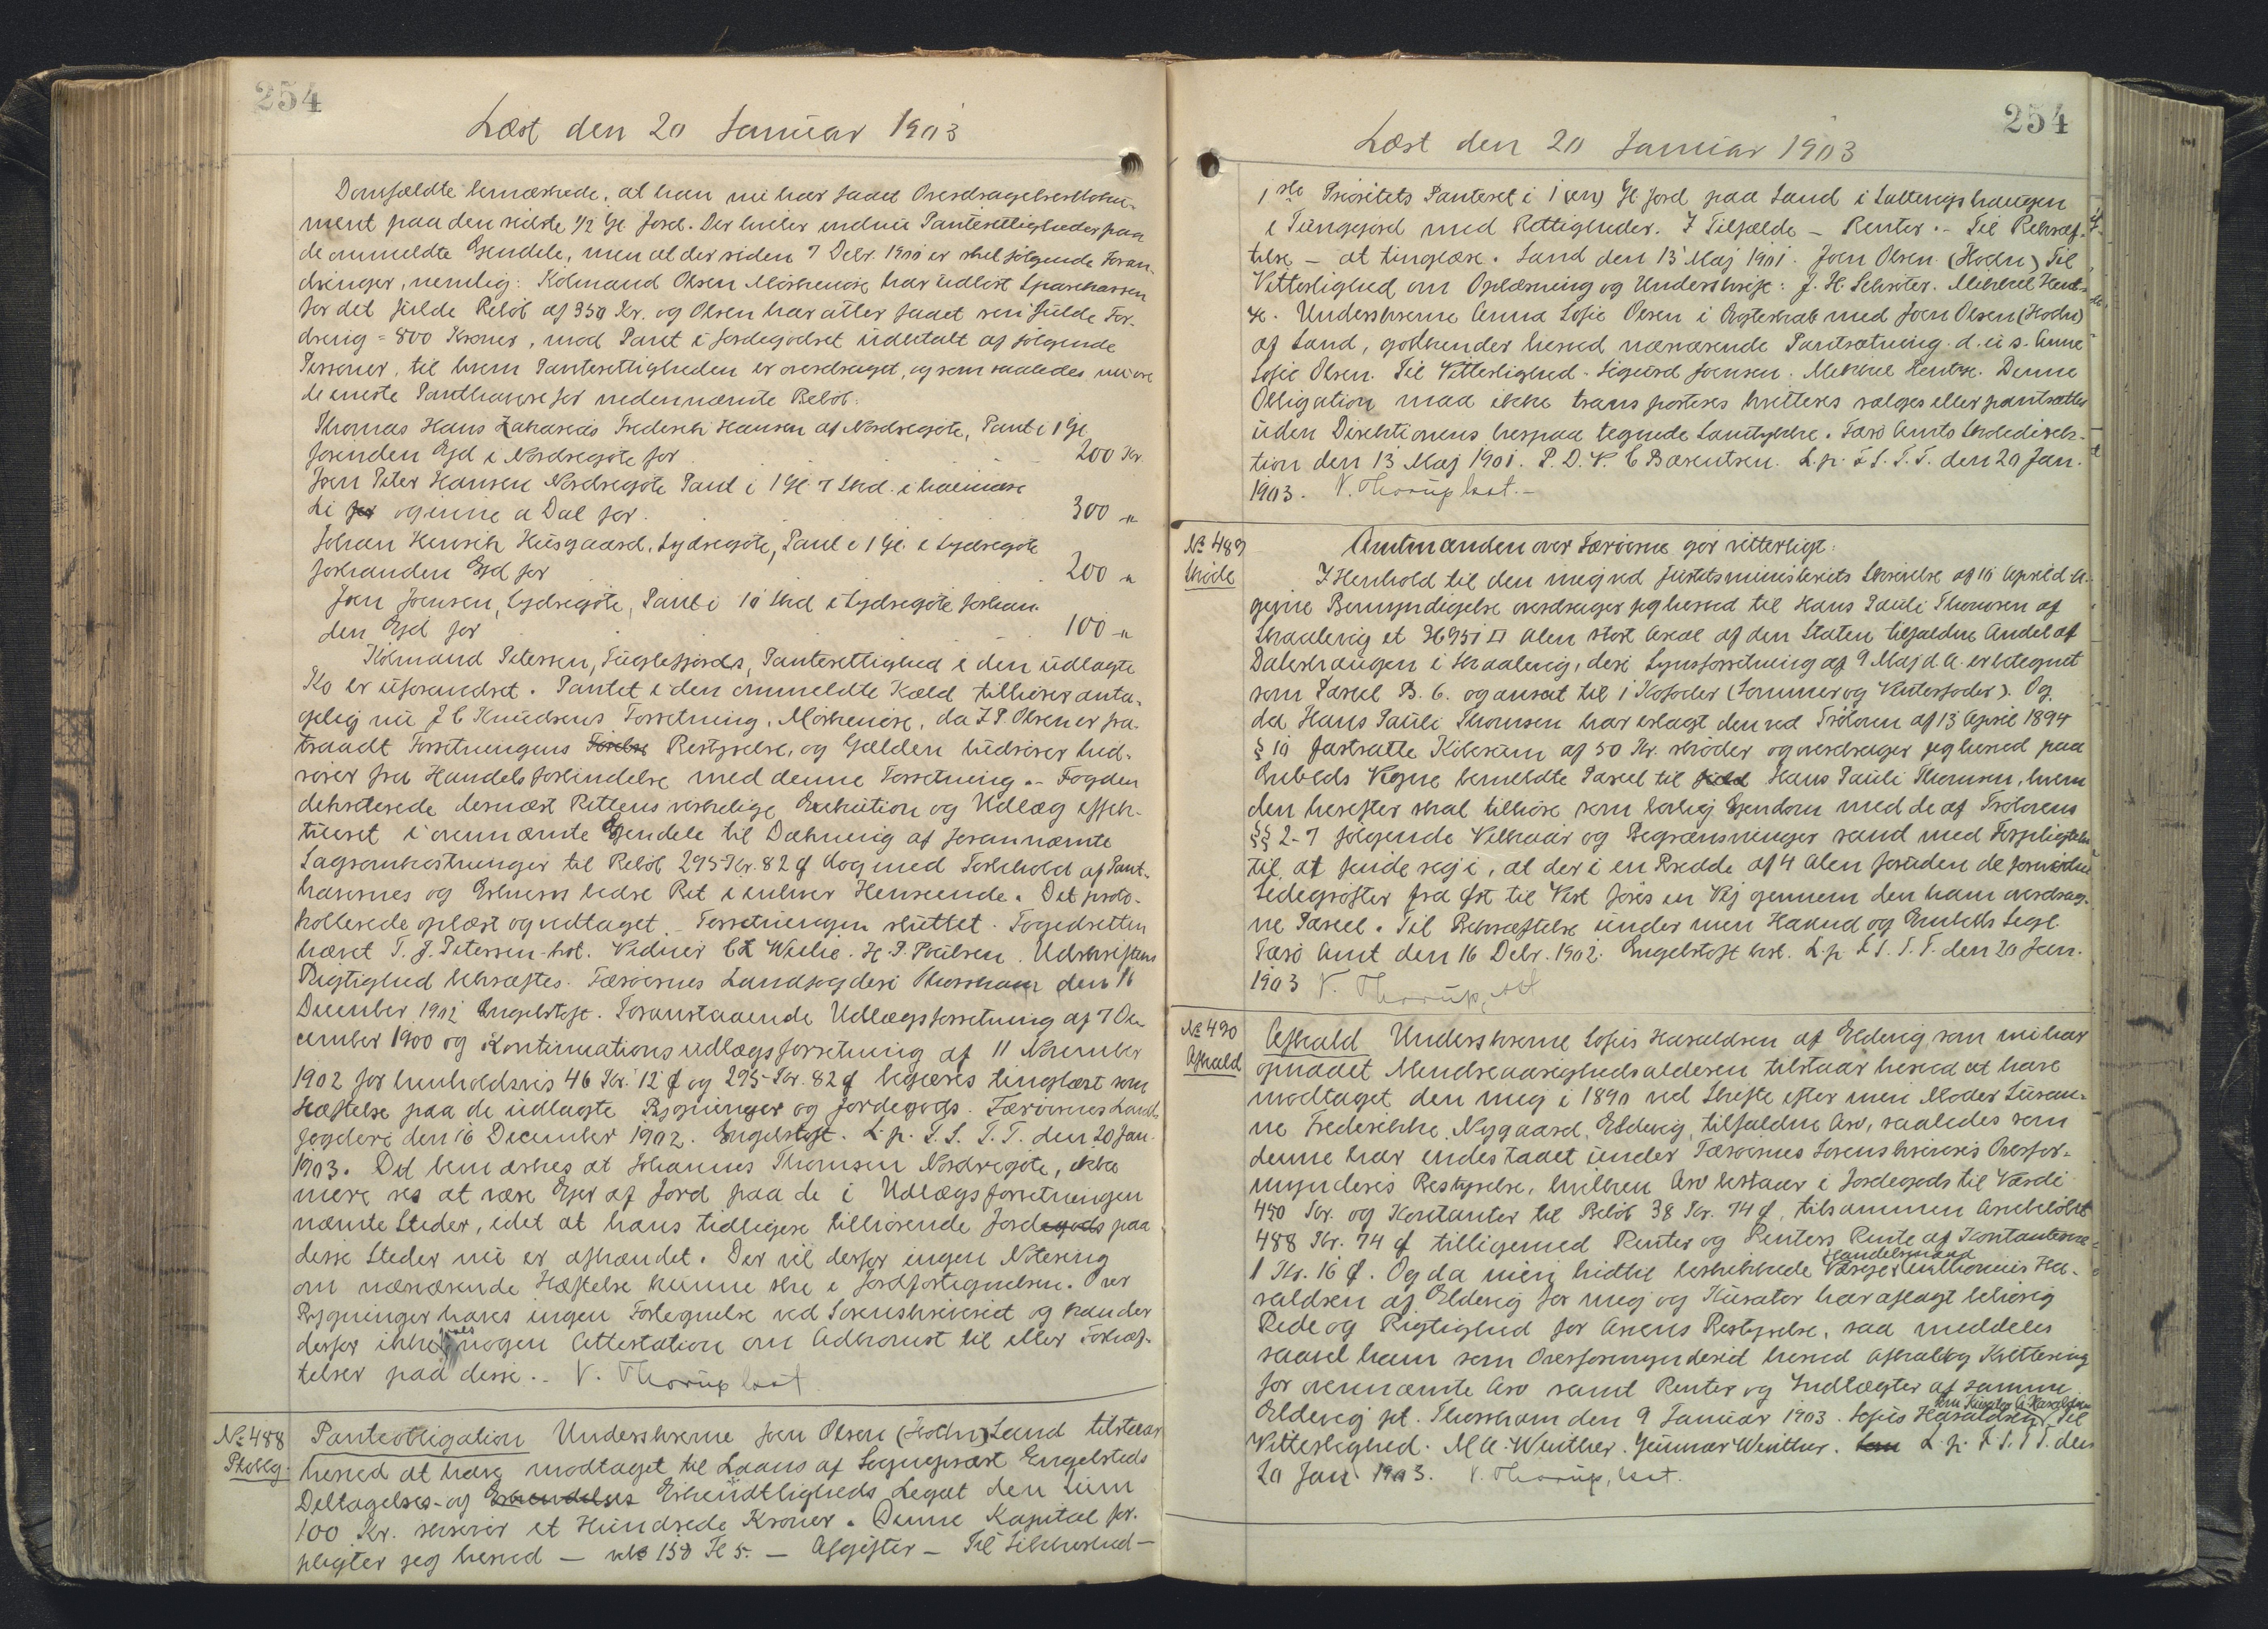 254
Læst den 20 Januar 1903
Domfældte bemærkede, at han nu har faaet Overdragelsesdoku-
ment paa den sidste 1/2 Gl Jord. Der hviler endnu Panterettigheder paa
de ommeldte Ejendele, men at der siden 7 Debr. 1900 er sket følgende Foran-
dringer, nemlig: Kolmand Olsen Morkenøre har indløst Sparekassen
for det fulde Beløb af 350 Kr. og Olsen har atter faaet sin fulde For-
dring = 800 Kroner, mod Pant i Jordegodset udbetalt af følgende
Personer, til hvem Panterettigheden er overdraget, og som saaledes nu ere
de eneste Panthavere for nedennævnte Beløb:
Thomas Hans Zakarias Frederik Hansen af Nordregøte, Pant i 1 Gl
forinden Ejd i Nordregøte for 200 Kr.
Joen Peter Hansen Nordregøte Pant i 1 Gl 7 Skd. i
Li for og inni a Dal for 300 "
Johan Henrik Husgaard, Sydregøte, Pant i 1 Gl. i Sydregøte
forhanden Ejd for 200 "
Jan Joensen, Sydregøte, Pant i 10 Skd i Sydregøte forhan-
den Ejd for 100 "
Kolmand Petersen, Fuglefjords, Panterettighed i den udlagte
Ko er uforandret. Pantet i den ommeldte Kæld tilhører anta-
gelig nu J C Knudsens Forretning, Morkenøre, da J P. Olsen er fra-
traadt Forretningens Bestyrelse, og Gælden hidrører hid-
rører fra Handelsforbindelse med denne Forretning. – Fogden
dekreterede dernæst Rettens virkelige Exekution og Udlæg effek-
tueret i ovennævnte Ejendele til Dækning af forannævnte
Sagsomkostninger til Beløb 295 Kr. 82 ø dog med Forbehold af Pant-
havernes og Enhvers bedre Ret i enhver Henseende. Det proto-
kollerede oplæst og vedtaget. – Forretningen sluttet. Fogedretten
hævet T. J. Petersen kst. Vidner C L Weihe. H. P. Poulsen. Udskriftens
Rigtighed bekræftes. Færøernes Landfogderi Thorshavn den 16
December 1902 Engelstoft. Foranstaaende Udlægsforretning af 7 De-
cember 1900 og Kontinuationsudlægsforretning af 11 November
1902 for henholdsvis 46 Kr. 12 ø og 295 Kr. 82 ø begæres tinglæst som
Hæftelse paa de udlagte Bygninger og Jordegods. Færøernes Land-
fogderi den 16 December 1902. Engelstoft. L. p. F. S. T. T. den 20 Jan.
1903. Det bemærkes at Johannes Thomsen Nordregøte, ikke
mere ses at være Ejer af Jord paa de i Udlægsforretningen
nævnte Steder, idet at hans tidligere tilhørende Jordegods paa
disse Steder nu er afhændet. Der vil derfor ingen Notering
om nærværende Hæftelse kunne ske i Jordfortegnelsen. Over
Bygninger haves ingen Fortegnelse ved Sorenskriveriet og kan der
derfor ikke gives nogen Attestation om Adkomst til eller Forhæf-
telser paa disse. – V. Thorup kst
No 488
Ptoblg.
Panteobligation Underskrevne Joen Olsen (Hodn) Sand tilstaar
herved at have modtaget til Laans af Sognepræst Engelsteds
Deltagelses- og Erkendelses Erkendtligheds Legat den Sum
100 Kr. skriver et Hundrede Kroner. Denne Kapital for-
pligter jeg herved — 158 Fl 5. — Afgifter — Til Sikkerhed —
254
Læst den 20 Januar 1903
1ste Prioritets Panteret i 1 (en) Gl Jord paa Sand i Sattengshaugen
i Tungegjord med Rettigheder. I Tilfælde — Renter. – Til Bekræf-
telse — at tinglæse. Sand den 13 Maj 1901. Joen Olsen (Hodn) Til
Vitterlighed om Oplæsning og Underskrift: J. H. Schrøter. Mikkel Hent-
ze. Underskrevne Anna Sofie Olsen i Ægteskab med Joen Olsen (Hodn)
af Sand, godkender herved nærværende Pantsætning. d. u s. Anna
Sofie Olsen. Til Vitterlighed. Sigurd Joensen. Mikkel Hentze. Denne
Obligation maa ikke transporteres kvitteres sælges eller pantsættes
uden Direktionens herpaa tegnede Samtykke. Færø Amts Skoledirek-
tion den 13 Maj 1901. P. D. V. C Bærentsen. L. p. F S. T. T. den 20 Jan.
1903. V. Thorup kst. –
No 489
Skøde
Amtmanden over Færøerne gør vitterligt:
I Henhold til den mig ved Justitsministeriets Skrivelse af 10 April d. A.
givne Bemyndigelse overdrager jeg herved til Hans Pauli Thomsen af
Skaalevig et 36951 □ Alen stort Areal af den Staten tilfaldne Andel af
Daleshaugen i Skaalevig, der i Synsforretning af 9 Maj d. A. er betegnet
som Parcel B. 6. og ansat til 1 Kofoder (Sommer og Vinterfoder). Og
da Hans Pauli Thomsen har erlagt den ved Frdloven af 13 April 1894
§ 10 fastsatte Købesum af 50 Kr. skøder og overdrager jeg herved paa
Embeds Vegne bemeldte Parcel til Hans Pauli Thomsen, hvem
den herefter skal tilhøre som lovlig Ejendom med de af Frdlovens
§§ 2-7 følgende Vilkaar og Begrænsninger samt med Forpligtelse
til at finde sig i, at der i en Bredde af 4 Alen foruden de fornødne
Sidegrøfter fra Øst til Vest føres en Vej gennem den ham overdrag-
ne Parcel. Til Bekræftelse under min Haand og Embeds Segl.
Færø Amt den 16 Debr. 1902. Engelstoft kst. L. p F S. T. T. den 20 Jan.
1903 V. Thorup, kst
No 490
Afkald
Afkald Underskrevne Sofus Haraldsen af Eldevig som nu har
opnaaet Mindreaarighedsalderen tilstaar herved at have
modtaget den mig i 1890 ved Skifte efter min Moder Susan-
ne Frederikke Nygaard, Eldevig, tilfaldne Arv, saaledes som
denne har indestaaet under Færøernes Sorenskriveris Overfor-
mynderes Bestyrelse, hvilken Arv bestaar i Jordegods til Værdi
450 Kr. og Kontanter til Beløb 38 Kr. 74 ø, tilsammen Arvebeløbet
488 Kr. 74 ø tilligemed Renter og Renters Rente af Kontanterne =
1 Kr. 16 ø. Og da min hidtil beskikkede Værge Handelsmand Ha-
raldsen af Eldevig for mig og Kurator har aflagt behørig
Rede og Rigtighed for Arvens Bestyrelse, saa meddeles
saavel ham som Overformynderiet herved Afkald og Kvittering
for ovennævnte Arv samt Renter og Indtægter af samme.
Eldevig pt. Thorshavn den 9 Januar 1903. Sofus Haraldsen, som Kurator A Haraldsen Til
Vitterlighed. M A. Winther. Gunnar Winther. L. p. F S. T T. den
20 Jan 1903. V. Thorup, kst.